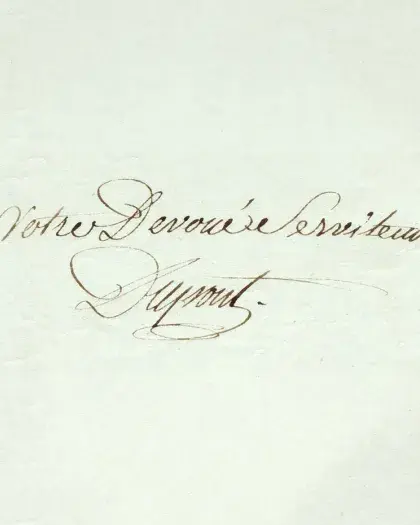 Votre Devoué Serviteur
Dupont.